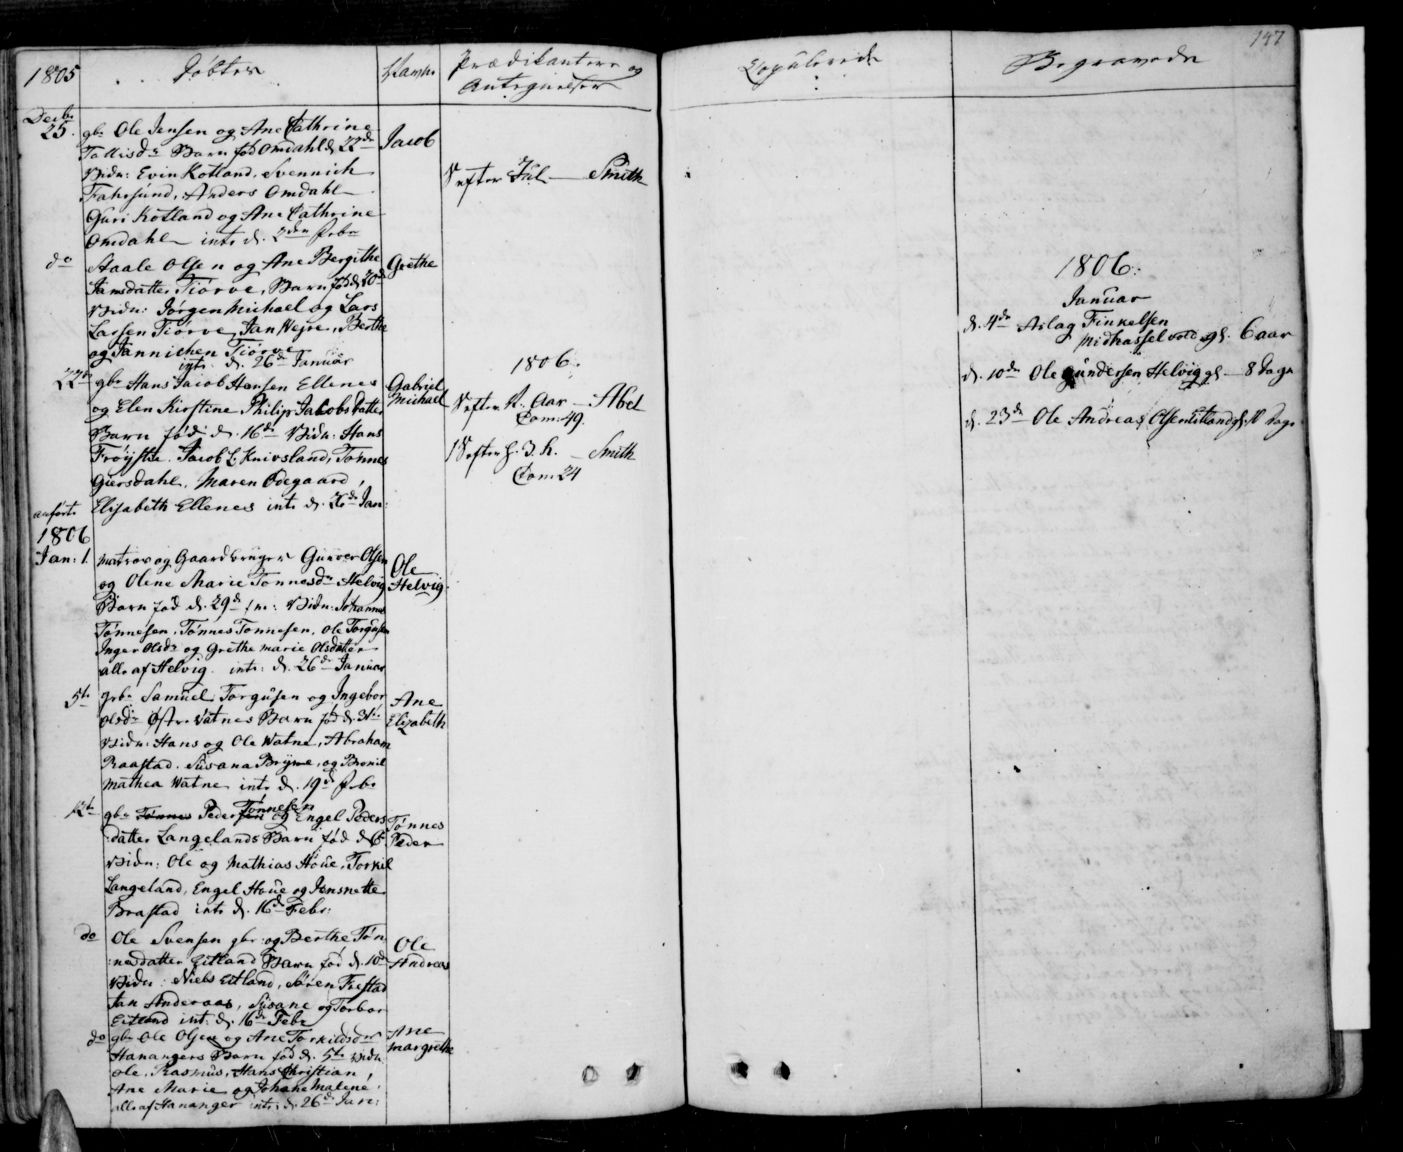 1805
Døbte
Navne
Prædikantere og
Antegnelser
Decbr
25.
gbr Ole Jensen og Ane Cathrine
Tollisdr Barn fød Omdahl d. 22de
Vidn: Evin Kotland, Svennich
Fahrsund, Anders Omdahl
Guri Kotland og Ane Cathrine
Omdahl intr. d. 2den Febr
Jacob
do
Staale Olsen og Ane Bergithe
Tiørve, Barn fød d. 20de
Vidn: Jørgen Michael og Lars
Larsen Tiørve, Jan Vejre, Berthe
og Tannichen Tiørve
intr. d. 26de Januar
Grethe
gbr Hans Jacob Hansen Ellenes
og Elen Kirstine Philip Jacobs Datter
Barn fød d. 16de Vidn: Hans
Jacob L. Knivsland, Tønnes
Giersdahl, Maren Ødegaard,
Elisabeth Ellenes intr d. 26de Jan:
Gabriel
Michael
anført
1806
Jan: 1.
Matros og Gaardbruger Gunder Olsen
og Olene Marie Tønnesdr Helvig
Barn fød d. 29de Vidn: Johannes
Tønnesen, Tønnes Tønnesen, Ole Torgusen
Inger Olsdr og Grethe Marie Olsdatter
alle af Helvig. intr: d. 26de Januar
Ole
Helvig.
5te
gbr Samuel Torgusen og Ingebor
Olsdr Østre Vatnes Barn fød d. 31te
Vidn: Hans og Ole Watne, Abraham
Raastad, Susana Bryne, og
Mathea Watne intr d. 19de Febr
Ane
Elizabeth
12te
gbr Tønnes Pedersen Tønnesen og Engel Peders
datter Langelands Barn fød d. 6te
Vidn: Ole og Mathias Houe, Torkel
Langeland, Engel Houe og Jensnette
Brastad intr d. 16de Febr:
Tønnes
Peder
do
Ole Svensen gbr: og Berthe Tøn
nesdatter Eitland Barn fød d. 10de
Vidn: Niels Eitland, Søren Frestad
Jan Anderaas, Susane og Torbor
Eitland intr: d. 16de Febr
Ole
Andreas
do
gbr Ole Olsen og Ane Torkildsdr
Hanangers Barn fød d. 5te Vidn
Ole, Rasmus, Hans Christian,
Ane Marie og Johane Malene
alle af Hananger intr: d. 26de Jan:
Ane
Margrethe
S. efter Jul — Smith
1806.
S. efter N. Aar — Abel
Com: 49.
1 S. efter h. 3. k. — Smith
Com 24
Copulerede
Begravede
147
1806.
Januar
d. 4de Aslag Finkelsen
Midhasselvold gl. 6 aar
d. 10de Ole Gundersen Helvig gl — 8 Dage
d. 23de Ole Andreas Olsen Eitland gl. 10 Dage